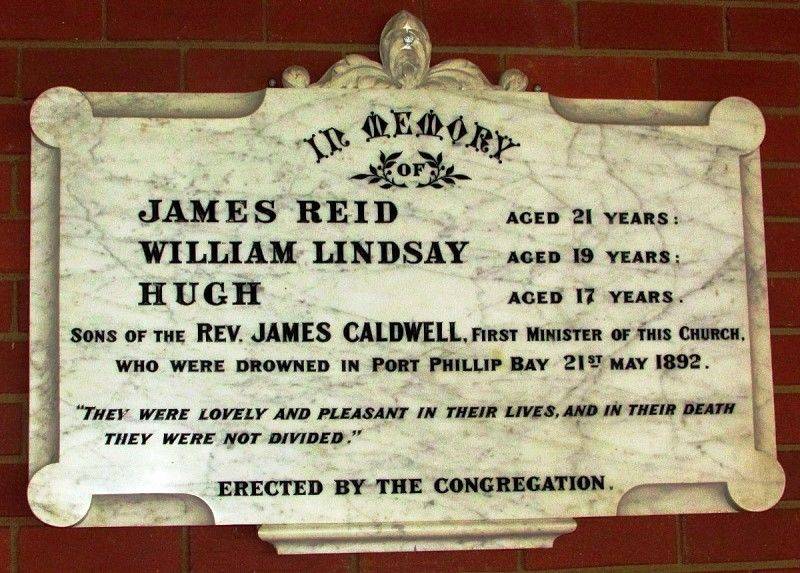 IN MEMORY
OF
JAMES REID AGED 21 YEARS:
WILLIAM LINDSAY AGED 19 YEARS:
HUGH AGED 17 YEARS.
SONS OF THE REV. JAMES CALDWELL, FIRST MINISTER OF THIS CHURCH,
WHO WERE DROWNED IN PORT PHILLIP BAY 21ST MAY 1892.
"THEY WERE LOVELY AND PLEASANT IN THEIR LIVES, AND IN THEIR DEATH
THEY WERE NOT DIVIDED."
ERECTED BY THE CONGREGATION.